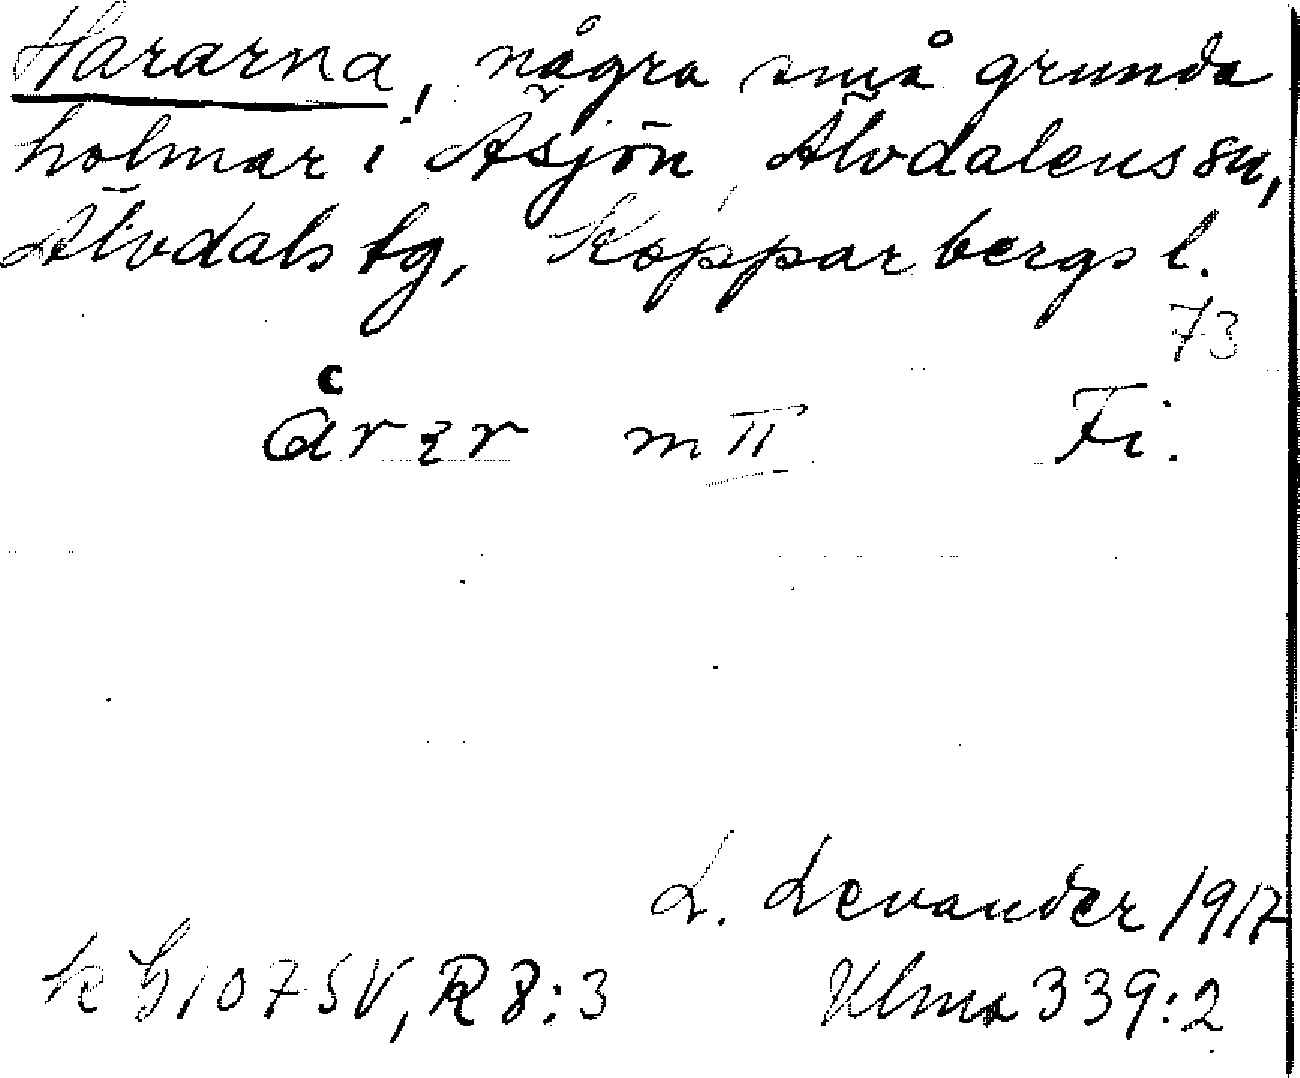 Hararna, några små grunda
holmar i Åsjön, Älvdalens sn,
Älvdals tg, Kopparbergs l.
73
m II Fi.
L. Levander 1917
k bl 107 SV, R 8:3 Ulma 339:2